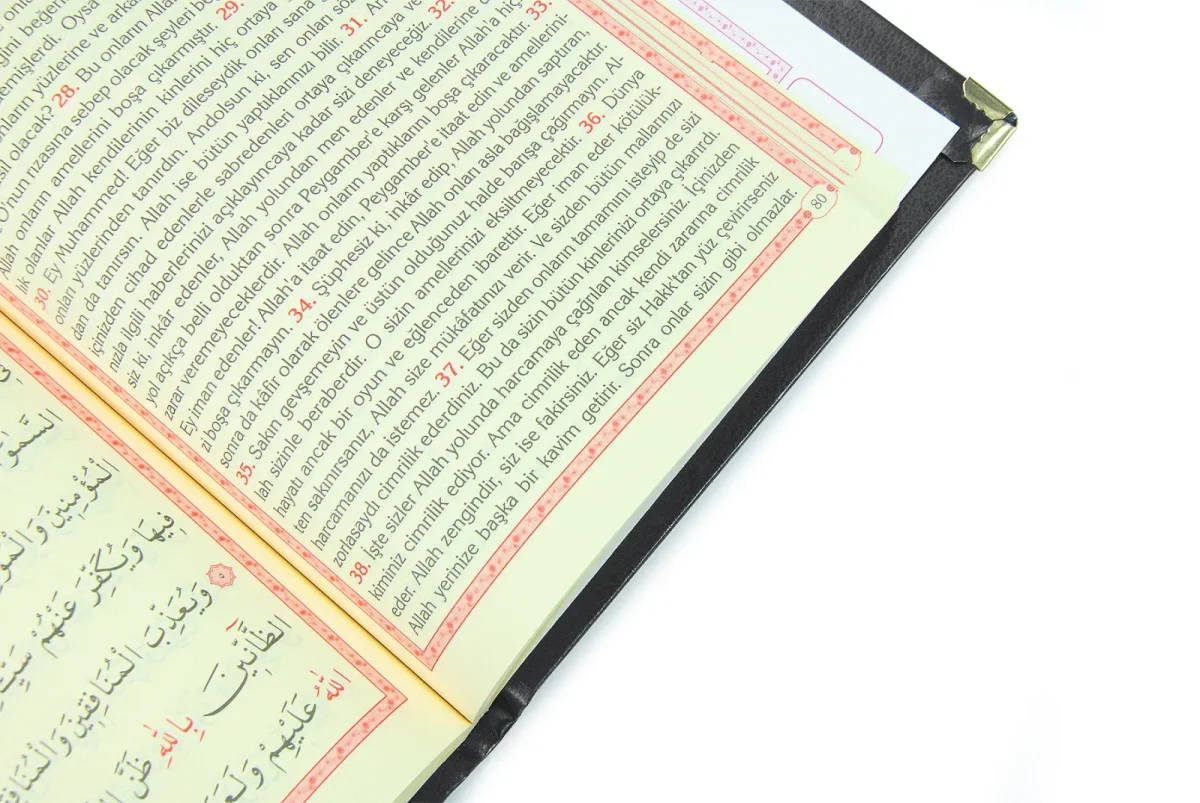 beğenm
Oysa
yüzlerine ve
olacak? 28. Bu onların
O'nun rızasına sebep olacak şeyleri
Allah onların amellerini boşa çıkarmıştır. 29.
lik olanlar Allah kendilerinin kinlerini hiç ortaya
30. Ey Muhammed! Eğer biz dileseydik onları sana
onları yüzlerinden tanırdın. Andolsun ki, sen onları
dan da tanırsın. Allah ise bütün yaptıklarınızı bilir. 31.
içinizden cihad edenlerle sabredenleri ortaya çıkarıncaya ve
nızla ilgili haberlerinizi açıklayıncaya kadar sizi deneyeceğiz. 32.
siz ki, inkâr edenler, Allah yolundan men edenler ve kendilerine
yol açıkça belli olduktan sonra Peygamber'e karşı gelenler Allah'a hiç
zarar veremeyeceklerdir. Allah onların yaptıklarını boşa çıkaracaktır. 33.
Ey iman edenler! Allah'a itaat edin, Peygamber'e itaat edin ve amellerini-
zi boşa çıkarmayın. 34. Şüphesiz ki, inkâr edip, Allah yolundan saptıran,
sonra da kâfir olarak ölenlere gelince Allah onları asla bağışlamayacaktır.
35. Sakın gevşemeyin ve üstün olduğunuz halde barışa çağırmayın. Al-
lah sizinle beraberdir. O sizin amellerinizi eksiltmeyecektir. 36. Dünya
hayatı ancak bir oyun ve eğlenceden ibarettir. Eğer iman eder kötülük-
ten sakınırsanız, Allah size mükâfatınızı verir. Ve sizden bütün mallarınızı
harcamanızı da istemez. 37. Eğer sizden onların tamamını isteyip de sizi
zorlasaydı cimrilik ederdiniz. Bu da sizin bütün kinlerinizi ortaya çıkarırdı.
38. İşte sizler Allah yolunda harcamaya çağrılan kimselersiniz. İçinizden
kiminiz cimrilik ediyor. Ama cimrilik eden ancak kendi zararına cimrilik
eder. Allah zengindir, siz ise fakirsiniz. Eğer siz Hakk'tan yüz çevirirseniz
Allah yerinize başka bir kavim getirir. Sonra onlar sizin gibi olmazlar.
80
فِي
الْمُؤْمِنِينَ
فِيهَا وَيُكَفِّرَ عَنْهُمْ
٥ وَيُعَذِّبَ الْمُنَافِقِينَ
الظَّانِّينَ بِاللّٰهِ ظَنَّ
اللّٰهُ عَلَيْهِمْ